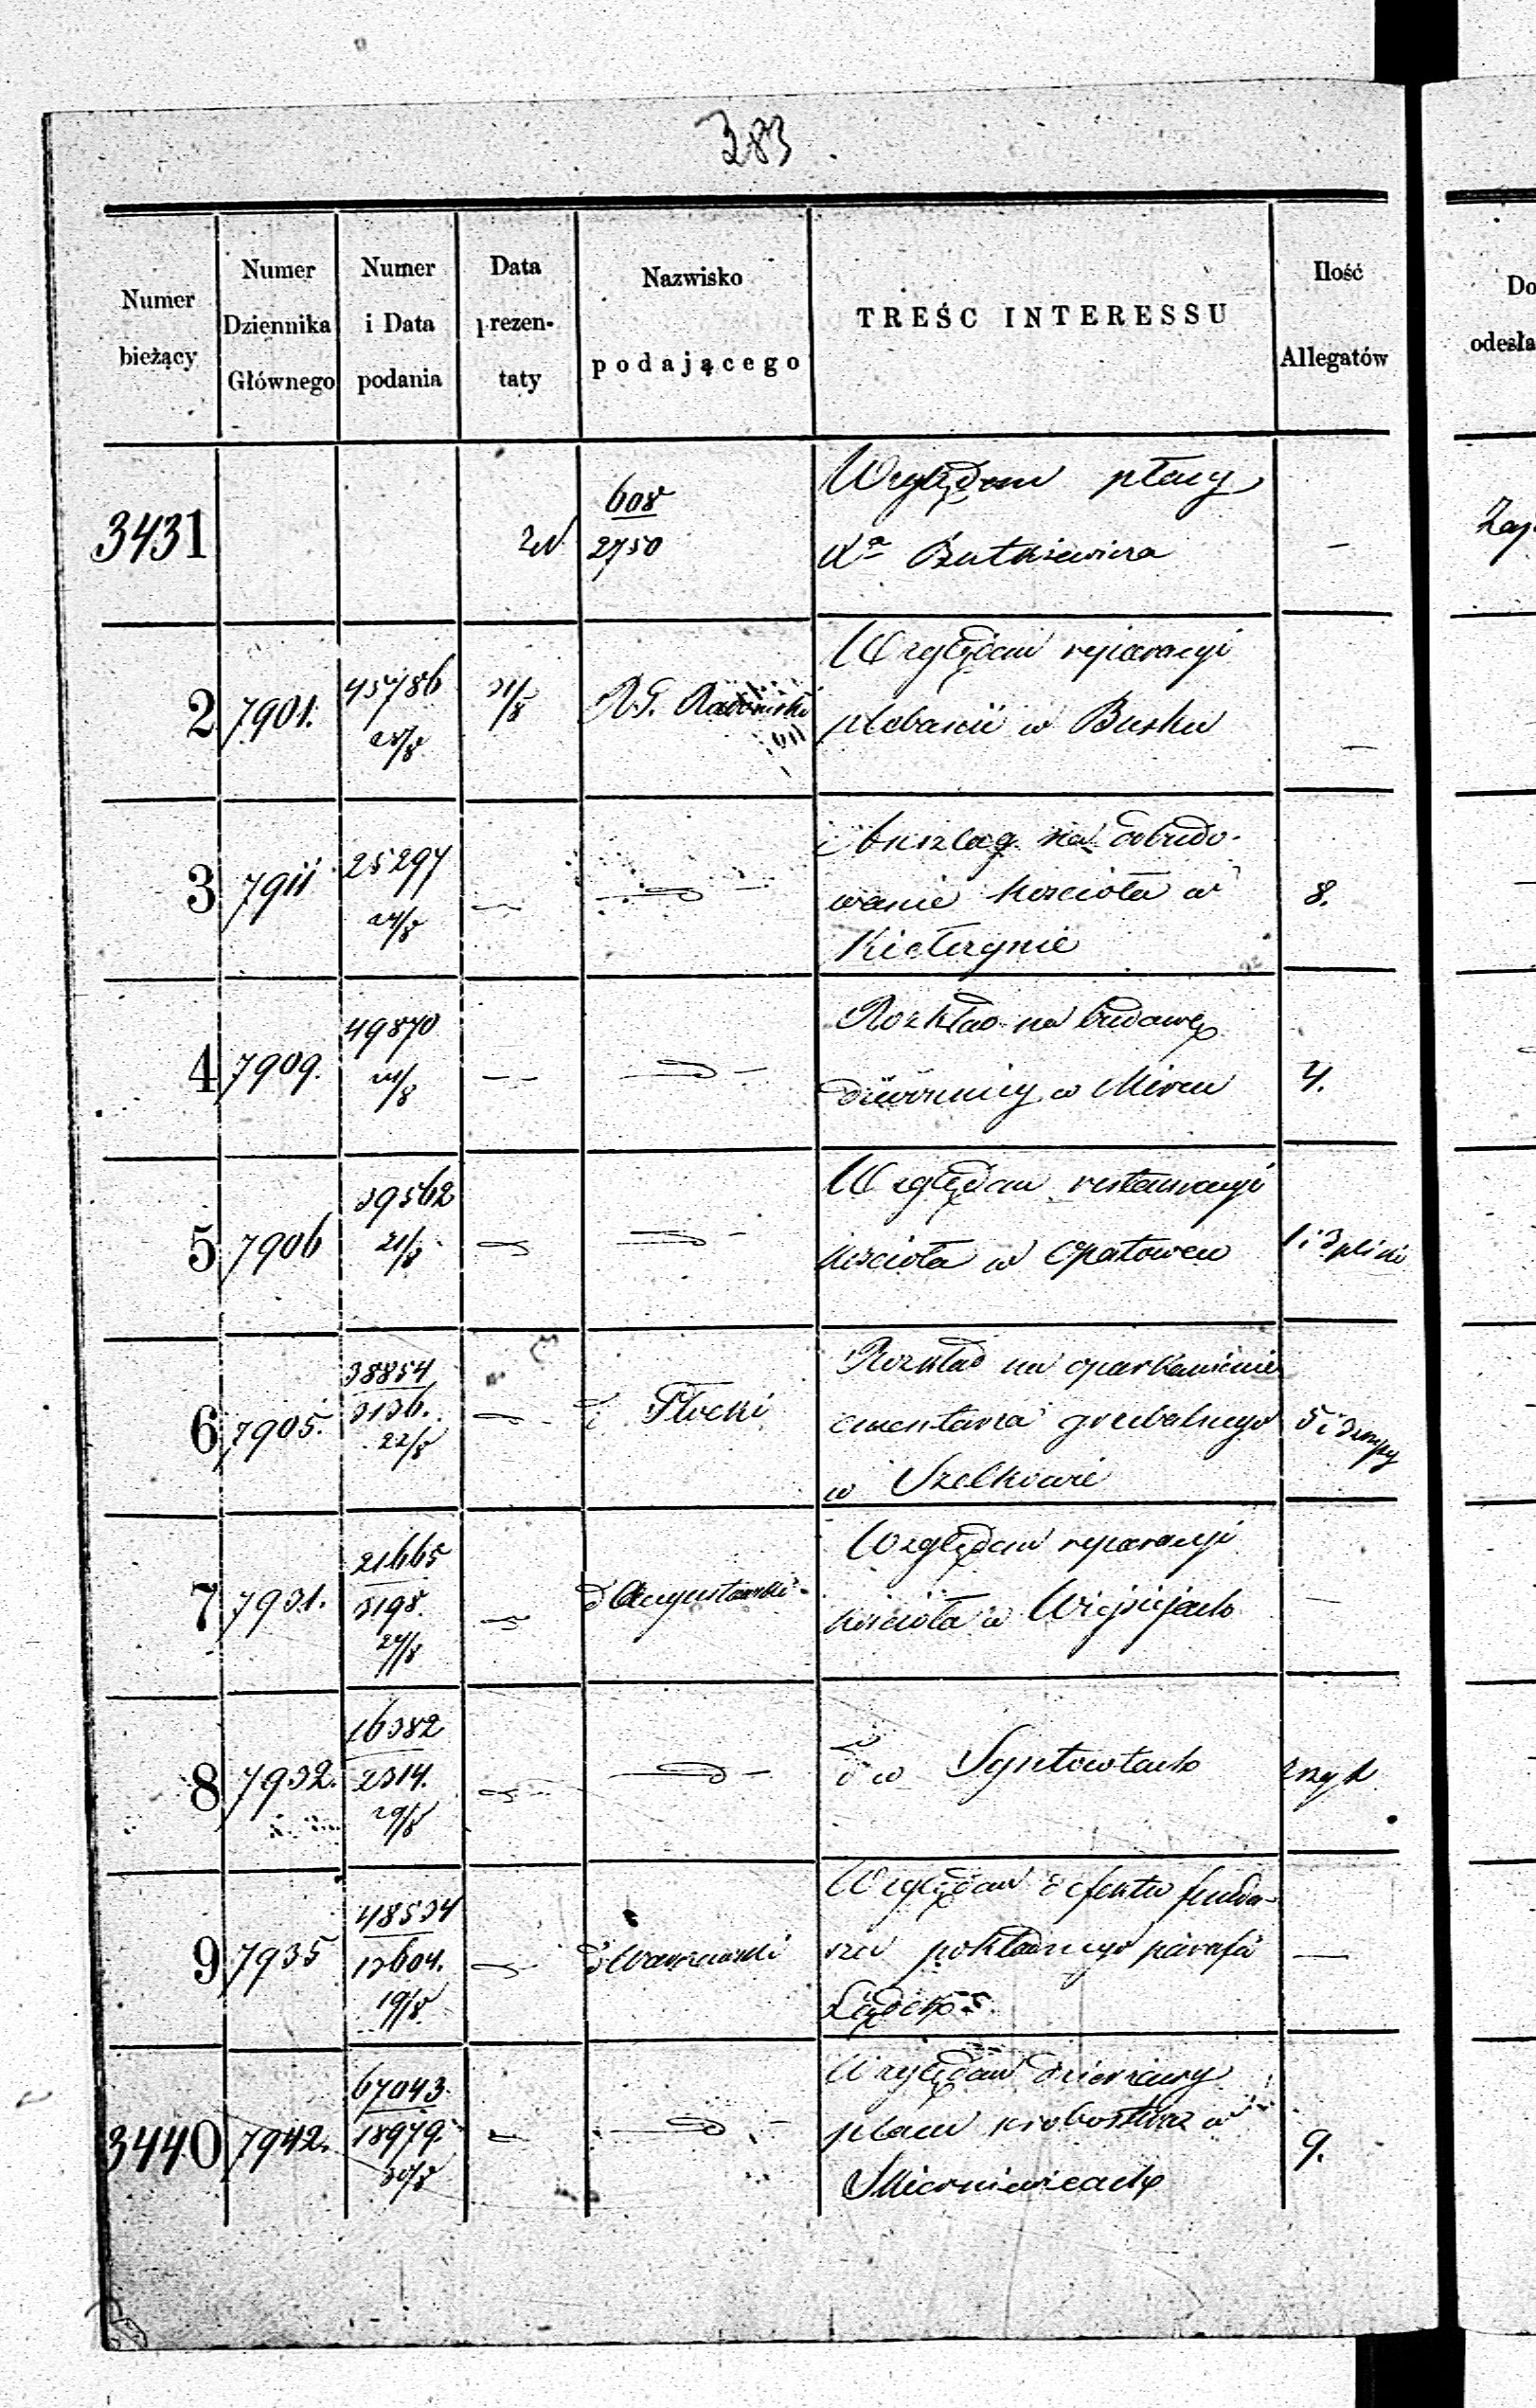 383
Numer bieżący
Numer Dziennika Głównego
Numer i Data podania
Data prezen- taty
Nazwisko podającego
TREŚC INTERESSU
Ilość Allegatów
Do
odesła
3431
608
2750
Względem płacy
Xa Butkiewicza
–
Zaj
2
7901.
45786
31/8
R.G. Radomski
Względem reparacyi
plebanii w Busku
–
3
7911
25297
24/8
Anszlag na dobudo-
wanie kościoła w
Kiełczynie
8.
4
7909.
49870
Rozkład na budowę
dzwonnicy w Mircu
4.
5
7906
39562
21/8
Względem restauracyi
kościoła w Opatowcu
6
7905.
38854
3136.
22/8
Płocki
Rozkład na oparkanienie
cmentarza grzebalnego
w Szelkowie
5 i
7
7931.
21665
5198.
24/8
d Augustowski
Względem reparacyi
kościoła w Wiejsiejach
–
8
7932.
16382
2314.
29/8
d w Syntowtach
9
7935
48534
13604.
19/8
d Warszawski
Względem defektu fundu-
szu pokładnego parafii
–
3440
7942.
67043.
18979.
30/8
Względem dzierżawy
placu probostwa w
Skierniewicach
9.